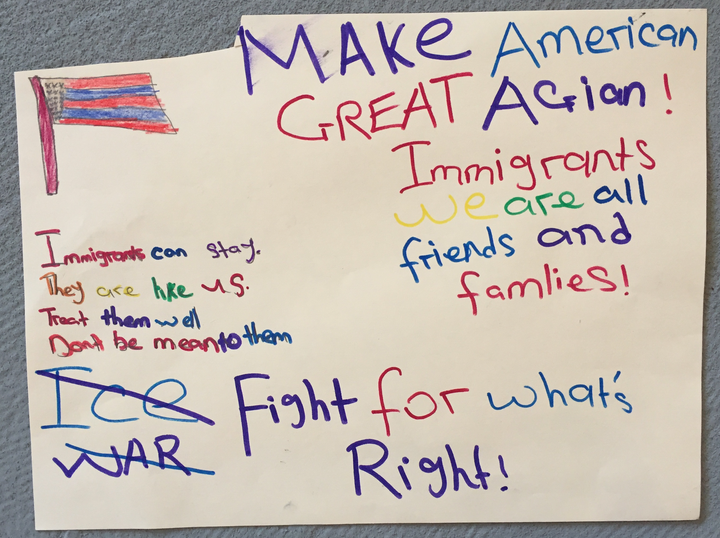 MAKE American
GREAT AGian!
Immigrants
we are all
friends and
famlies!
Immigrants can stay.
They are like us.
Treat them well
Don't be mean to them
Ice
WAR
Fight for what's
Right!